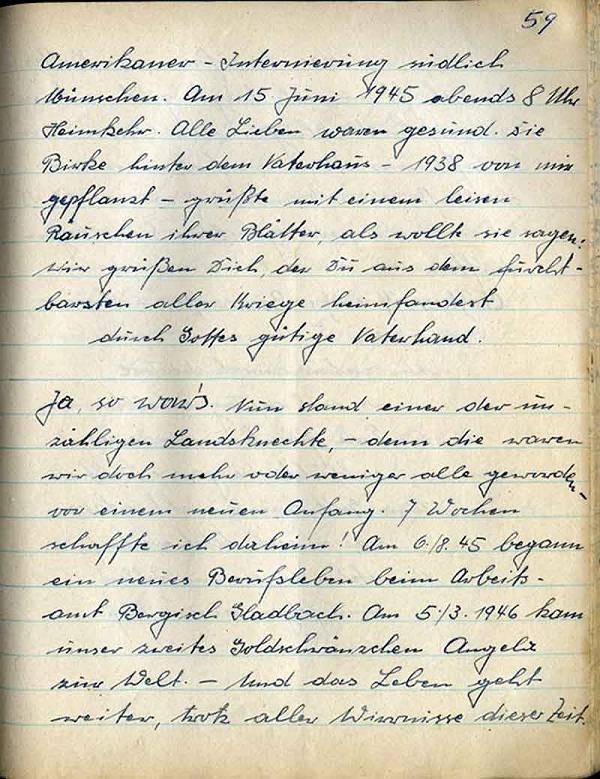 59
Amerikaner - Internierung südlich
München. Am 15 Juni 1945 abends 8 Uhr
Heimkehr. Alle Lieben waren gesund. Die
Birke hinter dem Vaterhaus - 1938 von mir
gepflanzt - grüßte mit einem leisen
Rauschen ihrer Blätter, als wollte sie sagen:
Wir grüßen Dich, der Du aus dem furcht-
barsten aller Kriege heimfandest
durch Gottes gütige Vaterhand.
Ja, so war's. Nun stand einer der un-
zähligen Landsknechte, - denn die waren
wir doch mehr oder weniger alle geworden -
vor einem neuen Anfang. 7 Wochen
schaffte ich daheim! Am 6./8. 45 begann
ein neues Berufsleben beim Arbeits-
amt Bergisch Gladbach. Am 5./3. 1946 kam
unser zweites Goldschwänzchen Angela
zur Welt. - Und das Leben geht
weiter, trotz aller Wirrnisse dieser Zeit.